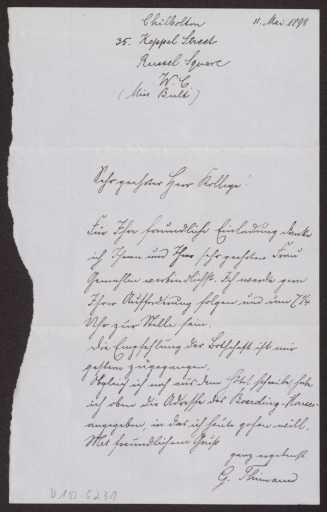 Chilbolton 11. Mai 1898
35. Keppel Street
Russel Square
W. C.
(Miss Bull)
Sehr geehrter Herr Kollege!
Für Ihre freundliche Einladung danke
ich Ihnen und Ihrer sehr geehrten Frau
Gemahlin verbindlichst. Ich werde gern
Ihrer Aufforderung folgen und um 7 1/4
Uhr zur Stelle sein.
Die Empfehlung der Botschaft ist mir
gestern zugegangen.
Obgleich ich noch aus dem Hotel schreibe, habe
ich oben die Adresse des Boarding-House
angegeben, in das ich heute gehen will.
Mit freundlichem Gruß
ganz ergebenst
G. Thimann